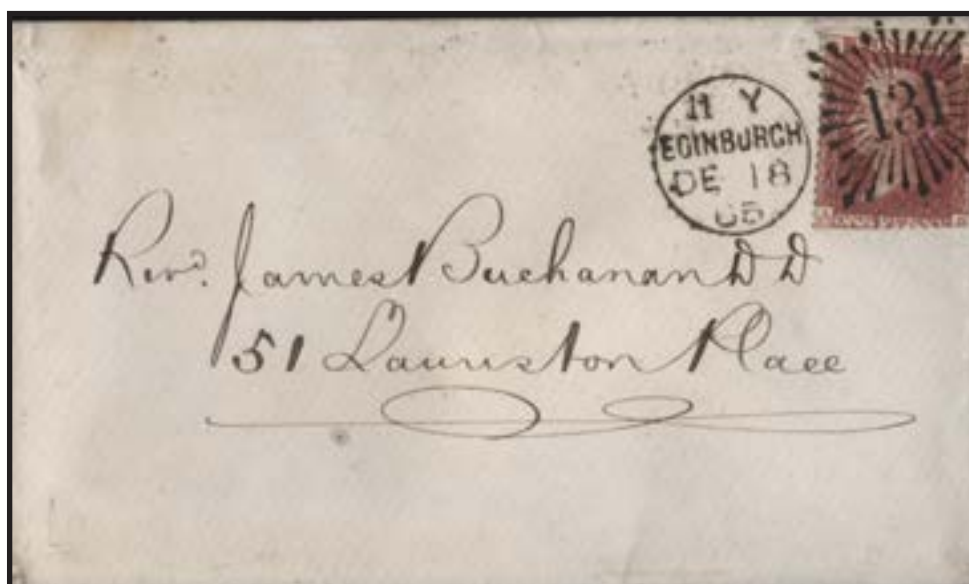 H Y
EDINBURGH
DE 18
65
131
Revd. James Buchanan D D
51 Lauriston Place